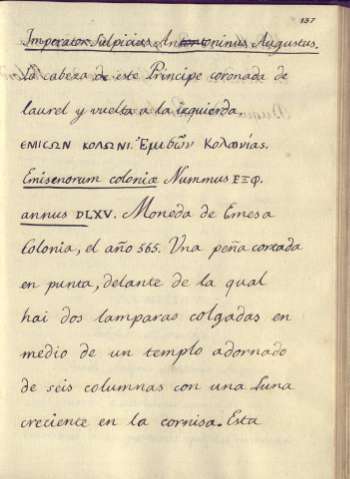 157
Imperator Sulpicius Antoninus Augustus.
La cabeza de este Principe coronada de
laurel y vuelta a la izquierda.
ЄΜΙCΩΝ ΚΟΛΩΝΙ. Ἐμισῶν Κολωνίας.
Emisenorum coloniæ Nummus ΕΞΦ.
annus DLXV. Moneda de Emesa
Colonia, el año 565. Una peña cortada
en punta, delante de la qual
hai dos lamparas colgadas en
medio de un templo adornado
de seis columnas con una Luna
creciente en la cornisa. Esta